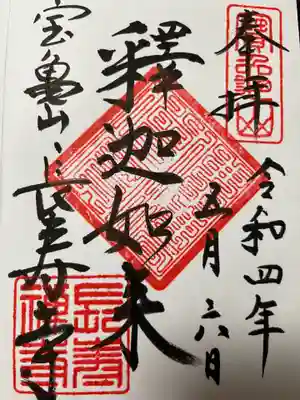 奉拝
令和四年
五月二六日
釋迦如来
宝亀山
長寿寺
長壽
禅寺